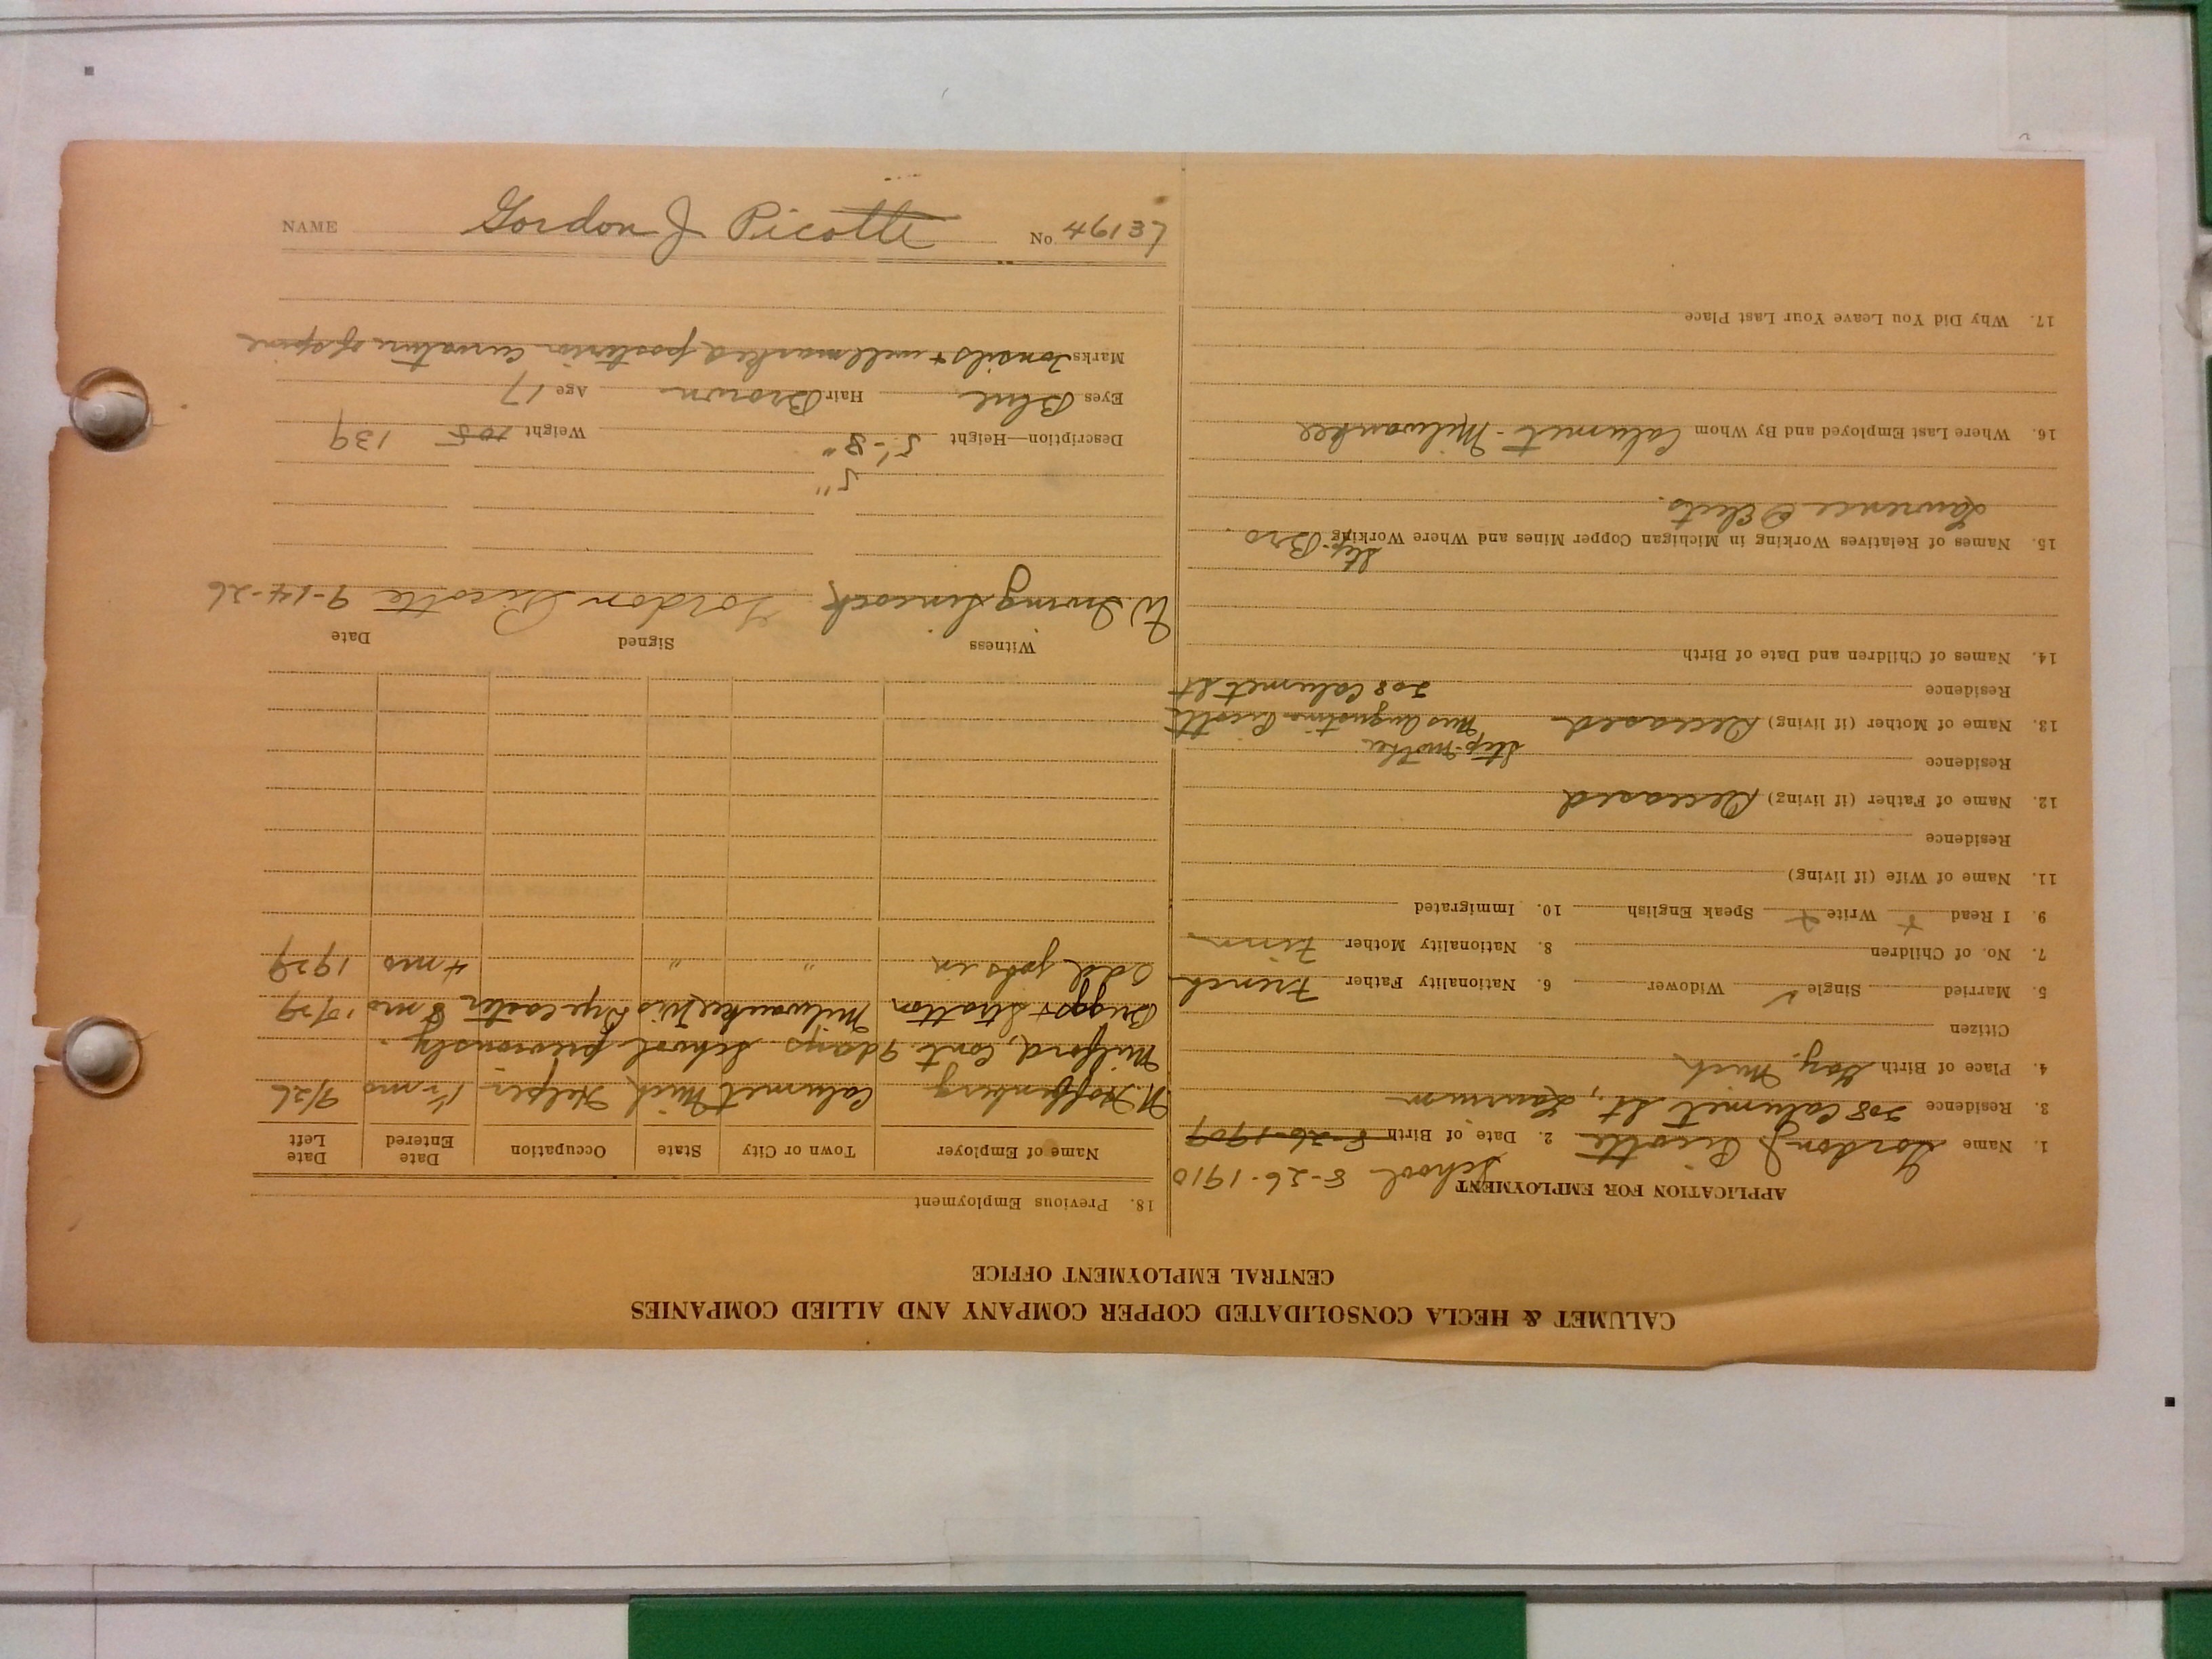 CALUMET & HECLA CONSOLIDATED COPPER COMPANY AND ALLIED COMPANIES
CENTRAL EMPLOYMENT OFFICE
APPLICATION FOR EMPLOYMENT School 8-26-1910
1. Name Gordon J Picotte 2. Date of Birth 8-26-1909
3. Residence 208 Calumet St., Laurium
4. Place of Birth Gay, Mich
Citizen
5. Married Single ✓ Widower 6. Nationality Father French
7. No. of Children 8. Nationality Mother Finn
9. I Read + Write + Speak English 10. Immigrated
11. Name of Wife (if living)
Residence
12. Name of Father (if living) Deceased
Residence Step-mother
13. Name of Mother (if living) Deceased Mrs Augustine Picotte
Residence 208 Calumet St
14. Names of Children and Date of Birth
15. Names of Relatives Working in Michigan Copper Mines and Where Working Step-Bro.
Lawrence
16. Where Last Employed and By Whom Calumet - Milwaukee
17. Why Did You Leave Your Last Place
18. Previous Employment
Name of Employer Town or City State Occupation Date Entered Date Left
Calumet Mich Helper mo 9/26
Milford, Cont. 9 days School previously.
Briggs + Stratton Milwaukee Wis Dye caster 8 mo
Odd jobs in " " 4 mo 1929
Witness Signed Date
W. Irving Lincock Gordon Picotte 9-14-26
5"
Description—Height 5'-8" Weight 105 139
Eyes Blue Hair Brown Age 17
Marks Tonsils + well marked posterior curvature of spine
NAME Gordon J Picotte No 46137